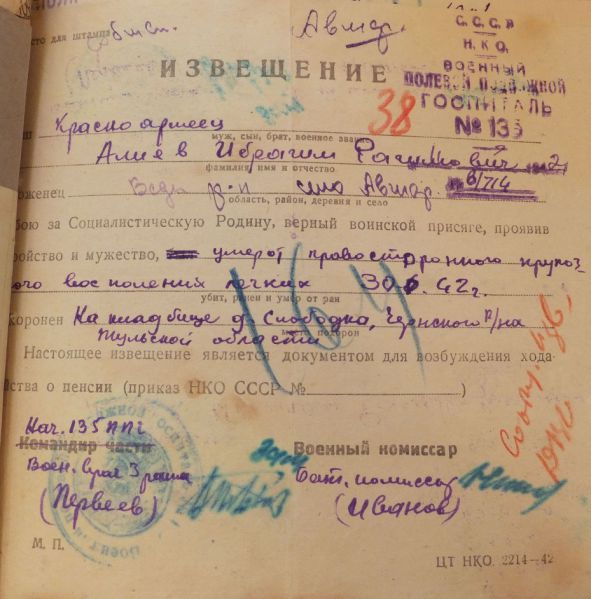 сто для штампа
Авшар
С.С.С.Р
Н.К.О.
ВОЕННЫЙ
ПОЛЕВОЙ ПОДВИЖНОЙ
ГОСПИТАЛЬ
№ 135
ИЗВЕЩЕНИЕ
38
Красноармеец
муж, сын, брат, военное звание
Алиев Ибрагим
фамилия, имя и отчество
оженец р-н село Авшар.
область, район, деревня и село
бою за Социалистическую Родину, верный воинской присяге, проявив
ройство и мужество, умер от правостороннего крупоз
ного воспаления легких 30.6.42 г.
убит, ранен и умер от ран
хоронен На кладбище д. Слободка, Чернского р/на
место похорон
Тульской области
164
Настоящее извещение является документом для возбуждения хода-
йства о пенсии (приказ НКО СССР № )
Нач. 135 ППГ
Командир части
Военный комиссар
Воен. врач 3 ранга
Бат. комиссар
(Первеев)
(Иванов)
М. П.
ЦТ НКО. 2214—42